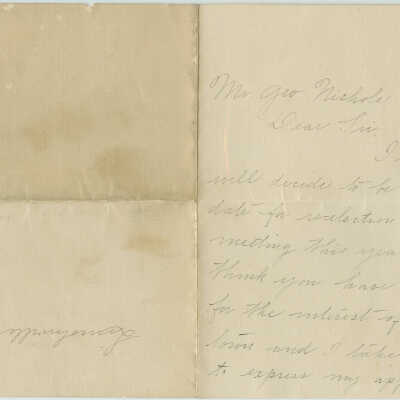 Mr. Geo Nichols
Dear Sir,
I
will decide to be
date for reelection
meeting this year
think you have
for the interest of
town and I take
to express my app